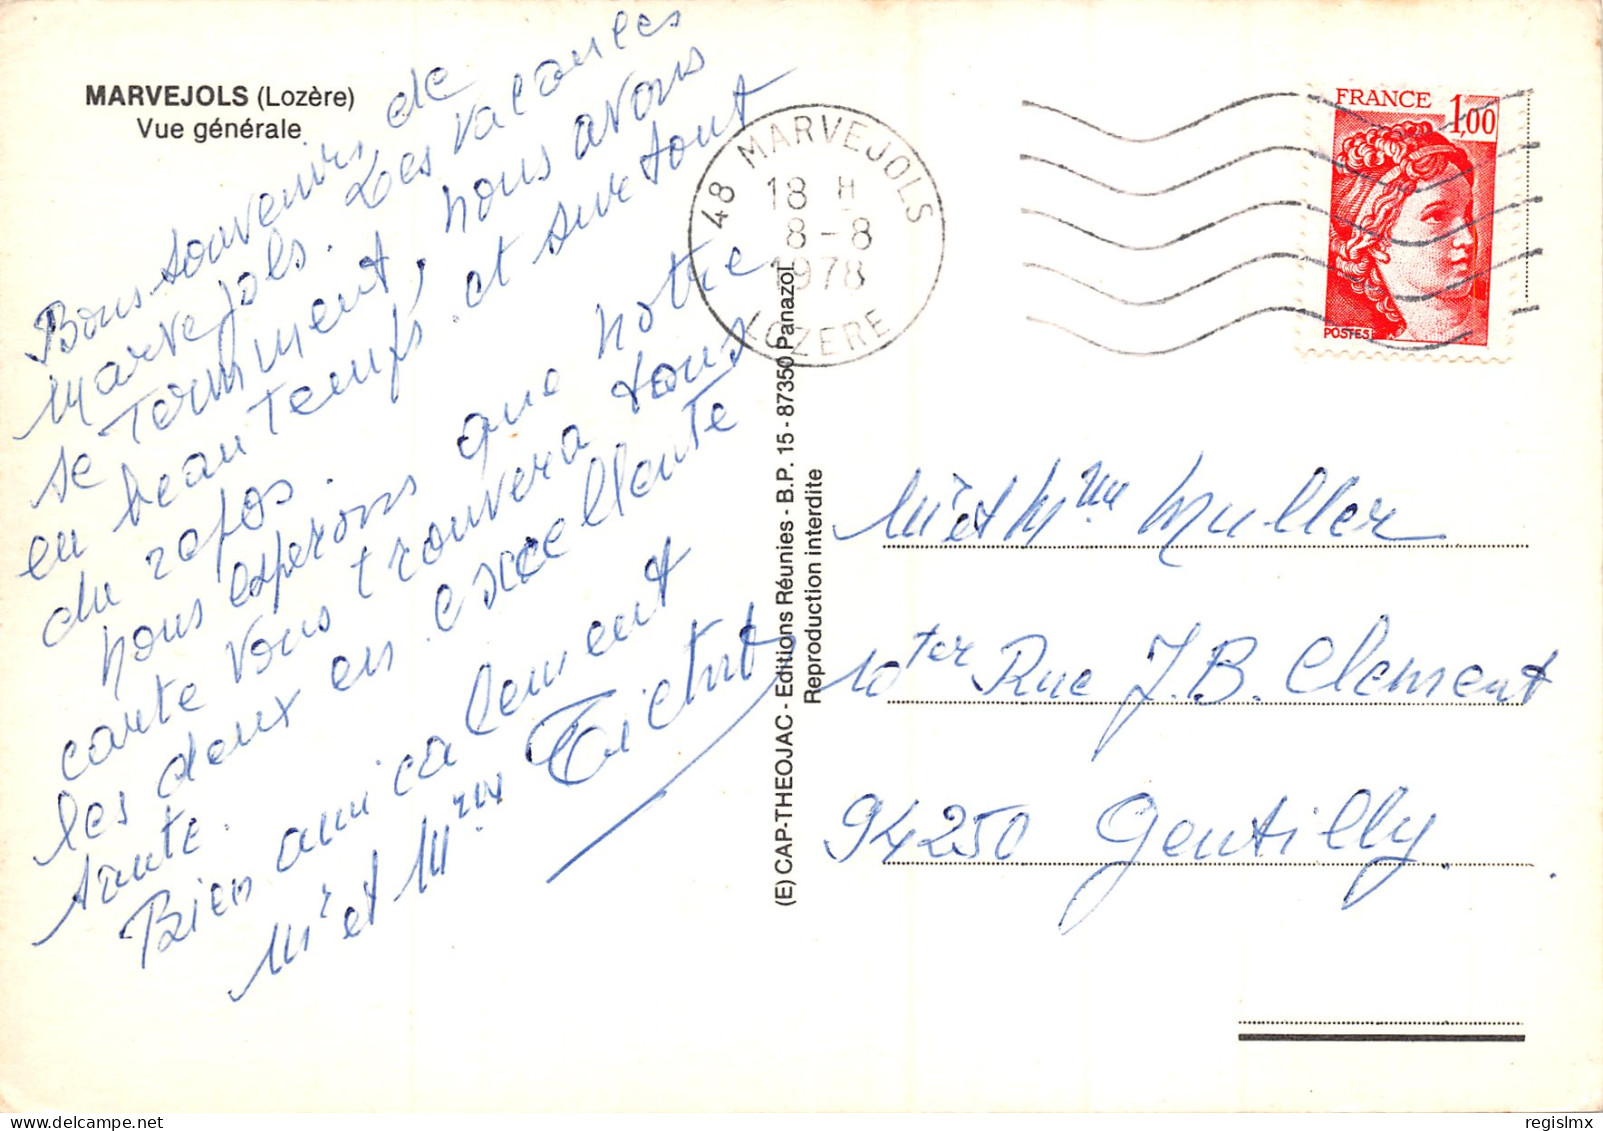 MARVEJOLS (Lozère)
Vue générale
Bons souvenirs de
Marvejols. Les vacances
se terminent, nous avons
eu beau temps et surtout
du repos.
nous esperons que notre
carte vous trouvera tous
les deux en excellente
sante.
Bien amicalement
Mr et Mme
48 MARVEJOLS
18 H
8-8
1978
LOZERE
FRANCE 1,00
POSTES
(E) CAP-THEOJAC - Editions Réunies - B.P. 15 - 87350 Panazol
Reproduction interdite
Mr et Mme Muller
10ter Rue J.B. Clement
94250 Gentilly.
regislmx